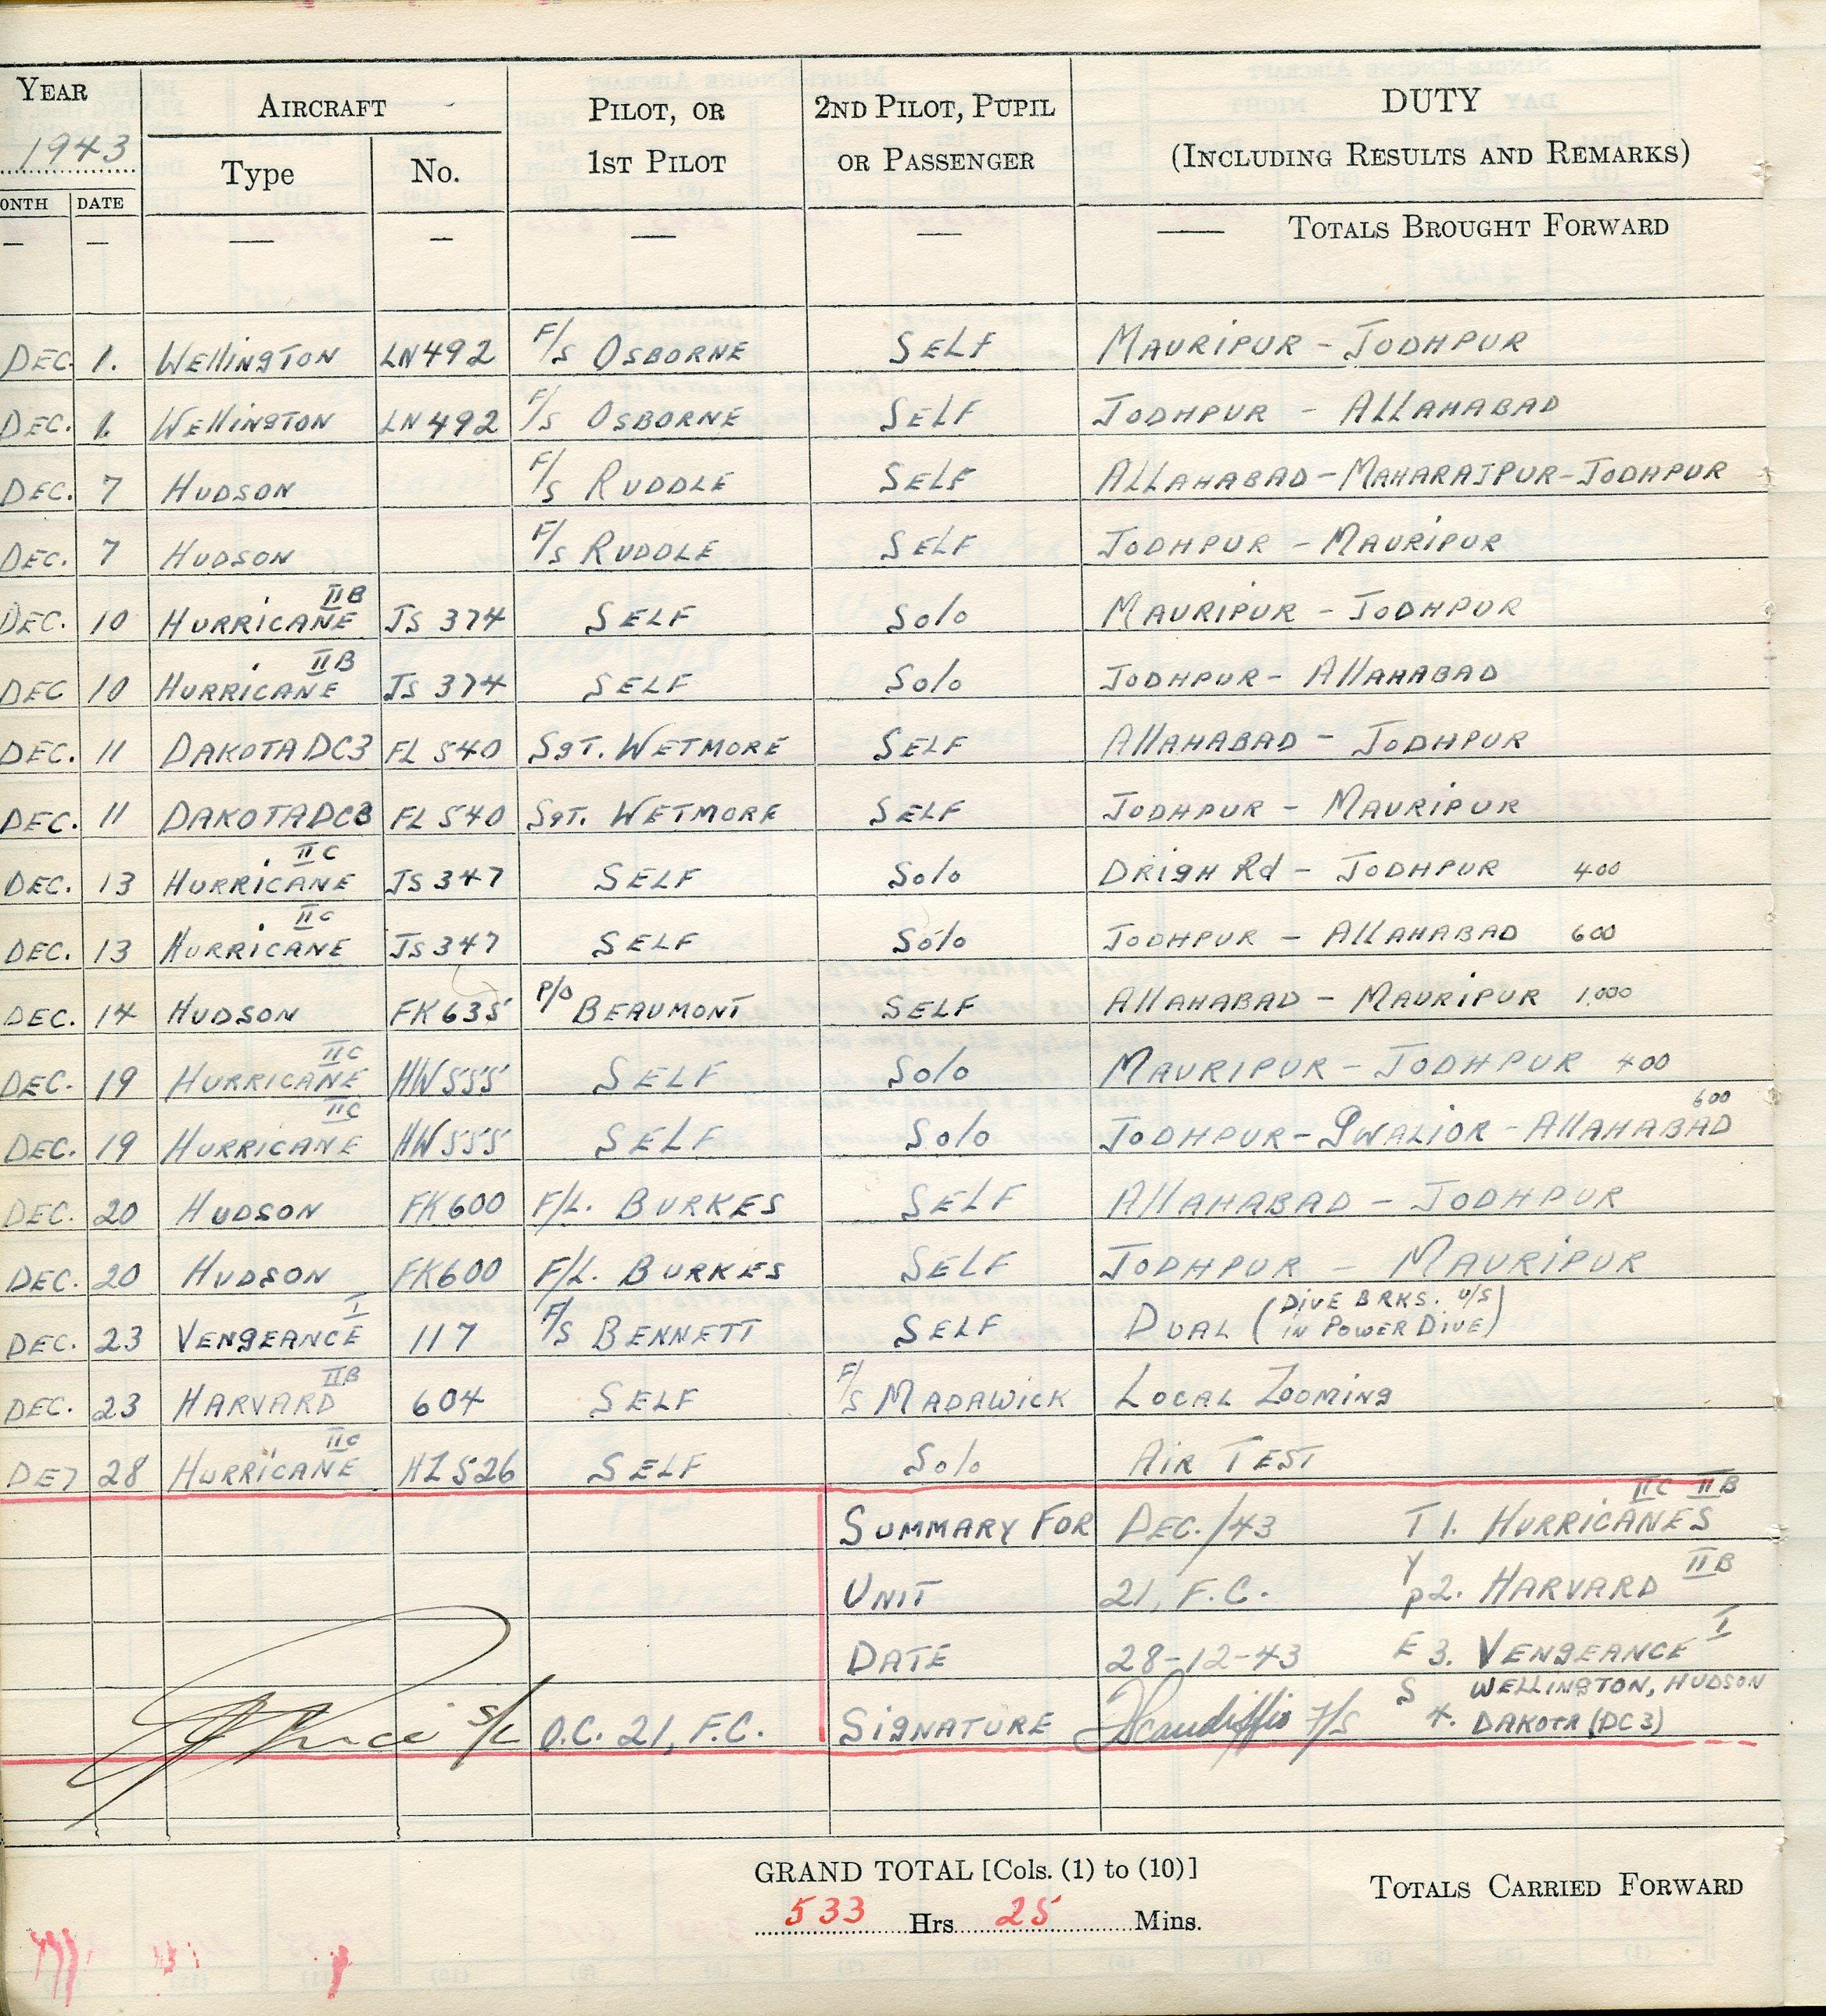 YEAR AIRCRAFT PILOT, OR 2ND PILOT, PUPIL DUTY
1943 Type No. 1ST PILOT OR PASSENGER (INCLUDING RESULTS AND REMARKS)
ONTH DATE
— — — — — — — TOTALS BROUGHT FORWARD
DEC. 1. WELLINGTON LN492 F/S OSBORNE SELF MAURIPUR - JODHPUR
DEC. 1. WELLINGTON LN492 F/S OSBORNE SELF JODHPUR - ALLAHABAD
DEC. 7 HUDSON F/S RUDDLE SELF ALLAHABAD - MAHARAJPUR - JODHPUR
DEC. 7 HUDSON F/S RUDDLE SELF JODHPUR - MAURIPUR
DEC. 10 HURRICANE IIB JS 374 SELF SOLO MAURIPUR - JODHPUR
DEC 10 HURRICANE IIB JS 374 SELF SOLO JODHPUR - ALLAHABAD
DEC. 11 DAKOTA DC3 FL 540 SGT. WETMORE SELF ALLAHABAD - JODHPUR
DEC. 11 DAKOTA DC3 FL 540 SGT. WETMORE SELF JODHPUR - MAURIPUR
DEC. 13 HURRICANE IIC JS 347 SELF SOLO DRIGH Rd - JODHPUR 400
DEC. 13 HURRICANE IIC JS 347 SELF SOLO JODHPUR - ALLAHABAD 600
DEC. 14 HUDSON FK 635 P/O BEAUMONT SELF ALLAHABAD - MAURIPUR 1,000
DEC. 19 HURRICANE IIC HW 555 SELF SOLO MAURIPUR - JODHPUR 400
DEC. 19 HURRICANE IIC HW 555 SELF SOLO JODHPUR - GWALIOR - ALLAHABAD 600
DEC. 20 HUDSON FK 600 F/L. BURKES SELF ALLAHABAD - JODHPUR
DEC. 20 HUDSON FK 600 F/L. BURKES SELF JODHPUR - MAURIPUR
DEC. 23 VENGEANCE I 117 F/S BENNETT SELF DUAL (DIVE BRKS. U/S IN POWER DIVE)
DEC. 23 HARVARD IIB 604 SELF F/S MADAWICK LOCAL ZOOMING
28 HURRICANE IIC HL 526 SELF SOLO AIR TEST
SUMMARY FOR DEC./43 T 1. HURRICANES IIC IIB
UNIT 21, F.C. Y P 2. HARVARD IIB
DATE 28-12-43 E 3. VENGEANCE I
S/L O.C. 21, F.C. SIGNATURE Scandiffio F/S S 4. WELLINGTON, HUDSON
DAKOTA (DC3)
GRAND TOTAL [Cols. (1) to (10)] TOTALS CARRIED FORWARD
533 Hrs. 25 Mins.